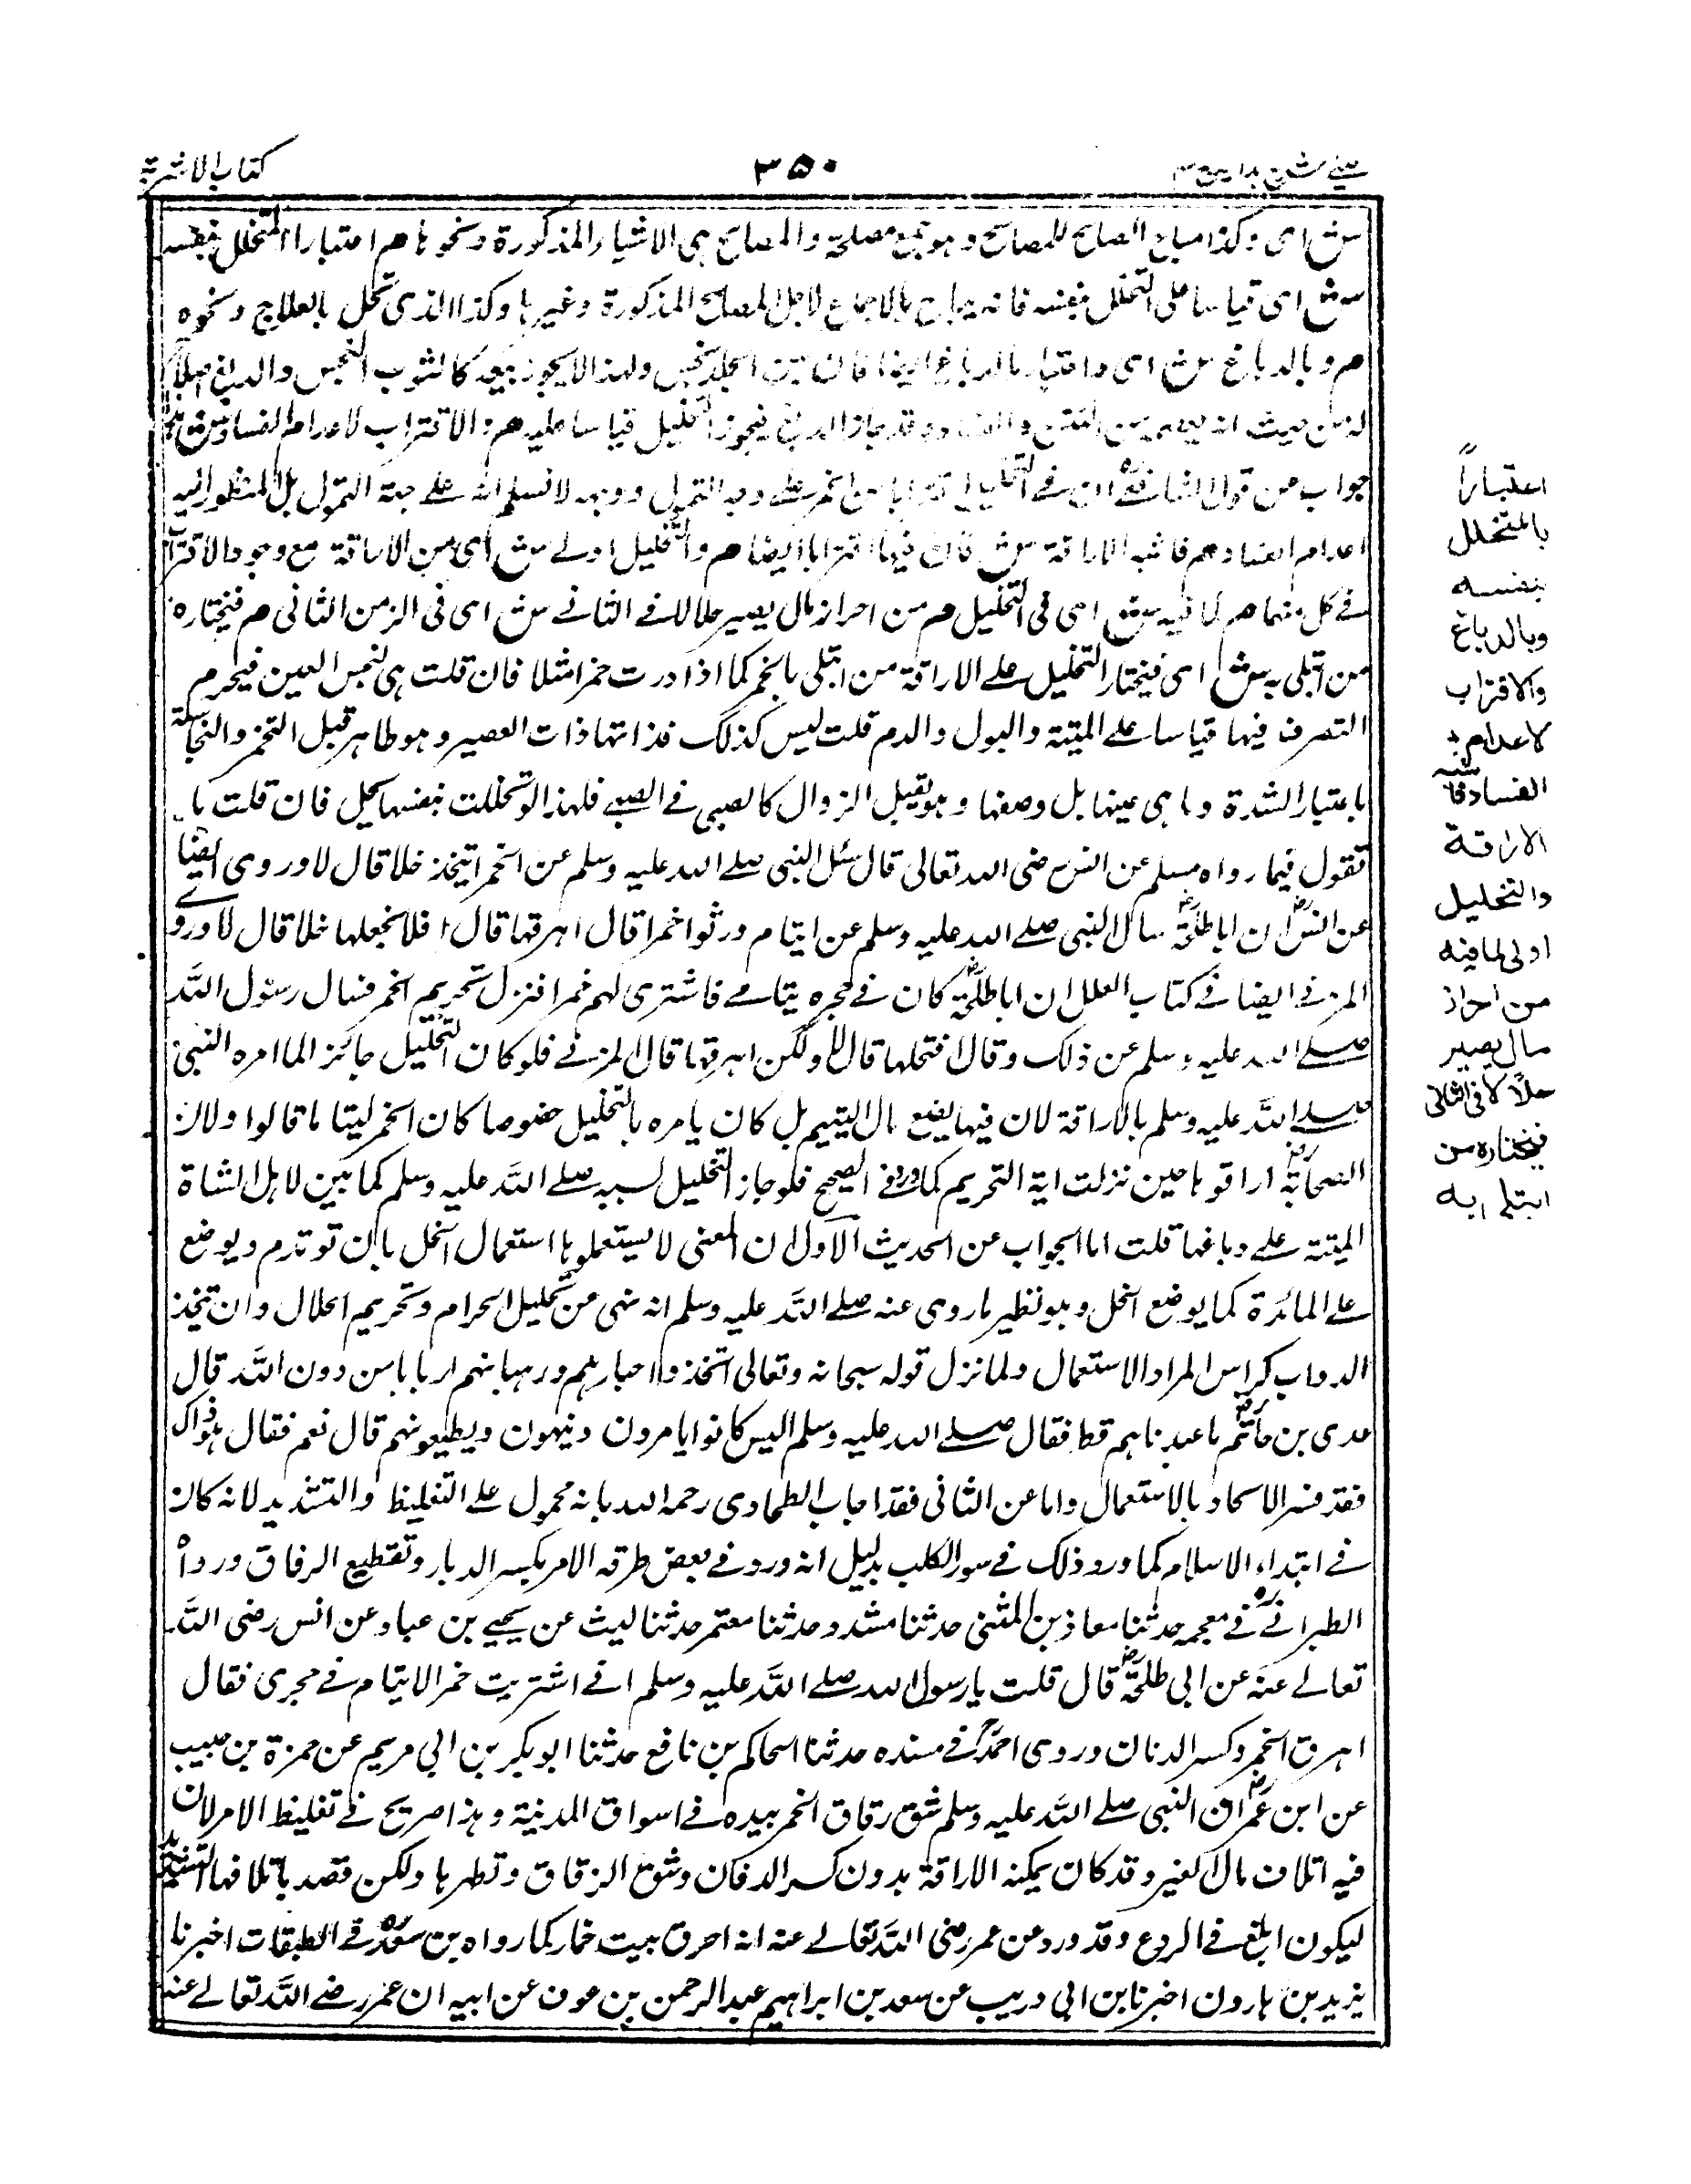 عینی شرح ہدایہ ج ۳
۳۵۰
کتاب الاشربة
ش ای وکذا مباح الصالح للمصالح وهو جمع مصلحة والمصالح هی الاشیاء المذکورة ونحوها هم اعتبارا بالمتخلل بنفسه
ش ای قیاسا علی المتخلل بنفسه فانه یباح بالاجماع لاجل المصالح المذکورة وغیرها وکذا الذی تخلل بالعلاج ونحوه
هم وبالدباغ ش ای واعتبارا بالدباغ ایضا فان عین الجلد نجس ولهذا لا یجوز بیعه کالثوب النجس والدباغ اصلاح
له من حیث انه یعصمه من النتن والفساد وقد جاز الدبغ فیجوز التخلیل قیاسا علیه هم والاقتراب لاعدام الفساد ش
جواب عن قول الشافعی ان فی التخلیل اقترابا من الخمر علی وجه التمول ووجهه لا نسلم انه علی جهة التمول بل المنظور الیه
اعدام الفساد هم فاشبه الاراقة ش فان فیها اقترابا ایضا هم والتخلیل اولی ش ای من الاراقة مع وجود الاقتراب
فی کل منهما هم لما فیه ش ای فی التخلیل هم من احراز مال یصیر حلالا فی الثانی ش ای فی الزمن الثانی هم فیختاره
من ابتلی به ش ای فیختار التخلیل علی الاراقة من ابتلی بالخمر کما اذا ورث خمرا مثلا فان قلت هی نجس العین فیحرم
التصرف فیها قیاسا علی المیتة والبول والدم قلت لیس کذلک فذاتها ذات العصیر وهو طاهر قبل التخمر والنجاسة
باعتبار الشدة وما هی عینها بل وصفها وهو تقبل الزوال کالصبی فی الصبی فلهذا لو تخللت بنفسها یحل فان قلت ما
تقول فیما رواه مسلم عن انس رضی الله تعالی قال سئل النبی صلے الله علیه وسلم عن الخمر اتتخذ خلا قال لا وروی ایضا
عن انس ان ابا طلحة سال النبی صلے الله علیه وسلم عن ایتام ورثوا خمرا قال اهرقها قال افلا نجعلها خلا قال لا وروی
المزنی ایضا فی کتاب العلل ان ابا طلحة کان فی حجره یتامی فاشتری لهم خمرا فنزل تحریم الخمر فسال رسول الله
صلے الله علیه وسلم عن ذلک وقال افتخلها قال لا ولکن اهرقها قال المزنی فلو کان التخلیل جائزا لما امره النبی
صلے الله علیه وسلم بالاراقة لان فیها یضیع مال الیتیم بل کان یامره بالتخلیل خصوصا کان الخمر لیتامی قالوا ولان
الصحابة اراقوها حین نزلت ایة التحریم کما ورد فی الصحیح فلو جاز التخلیل لبینه صلے الله علیه وسلم کما بین لاهل الشاة
المیتة علی دباغها قلت اما الجواب عن الحدیث الاول ان المعنی لا یستعملوها استعمال الخل بان توتدم ویوضع
علی المائدة کما یوضع الخل وهو نظیر ما روی عنه صلے الله علیه وسلم انه نهی عن تحلیل الحرام وتحریم الحلال وان تتخذ
الدواب کراسی المراد الاستعمال ولما نزل قوله سبحانه وتعالی اتخذوا احبارهم ورهبانهم اربابا من دون الله قال
عدی بن حاتم ما عبدناهم قط فقال صلے الله علیه وسلم الیس کانوا یامرون وینهون ویطیعونهم قال نعم فقال هو ذاک
فقد فسر الاتخاذ بالاستعمال واما عن الثانی فقد اجاب الطحاوی رحمه الله بانه محمول علی التغلیظ والتشدید لانه کان
فی ابتداء الاسلام کما ورد ذلک فی سور الکلب بدلیل انه ورد فی بعض طرقه الامر بکسر الدنان وتقطیع الزقاق ورواه
الطبرانی فی معجمه حدثنا معاذ بن المثنی حدثنا مسدد حدثنا معتمر حدثنا لیث عن یحیی بن عباد عن انس رضی الله
تعالی عنه عن ابی طلحة قال قلت یا رسول الله صلے الله علیه وسلم انی اشتریت خمرا لایتام فی حجری فقال
اهرق الخمر وکسر الدنان وروی احمد فی مسنده حدثنا الحاکم بن نافع حدثنا ابو بکر بن ابی مریم عن حمزة بن حبیب
عن ابن عمر ان النبی صلے الله علیه وسلم شق زقاق الخمر بیده فی اسواق المدینة وهذا صریح فی تغلیظ الامر لان
فیه اتلاف مال الغیر وقد کان یمکنه الاراقة بدون کسر الدنان وشق الزقاق وتطهرها ولکن قصد باتلافها التشدید
لیکون ابلغ فی الردع وقد ورد عن عمر رضی الله تعالی عنه انه احرق بیت خمار کما رواه بن سعد فی الطبقات اخبرنا
یزید بن هارون اخبرنا بن ابی ذئب عن سعد بن ابراهیم عبد الرحمن بن عوف عن ابیه ان عمر رضے الله تعالی عنه
اعتباراً
بالمتخلل
بنفسه
وبالدباغ
والاقتراب
لاعدام
الفساد فاشبه
الاراقة
والتخلیل
اولی لما فیه
من احراز
مال یصیر
حلالا فی الثانی
فیختاره من
ابتلی به